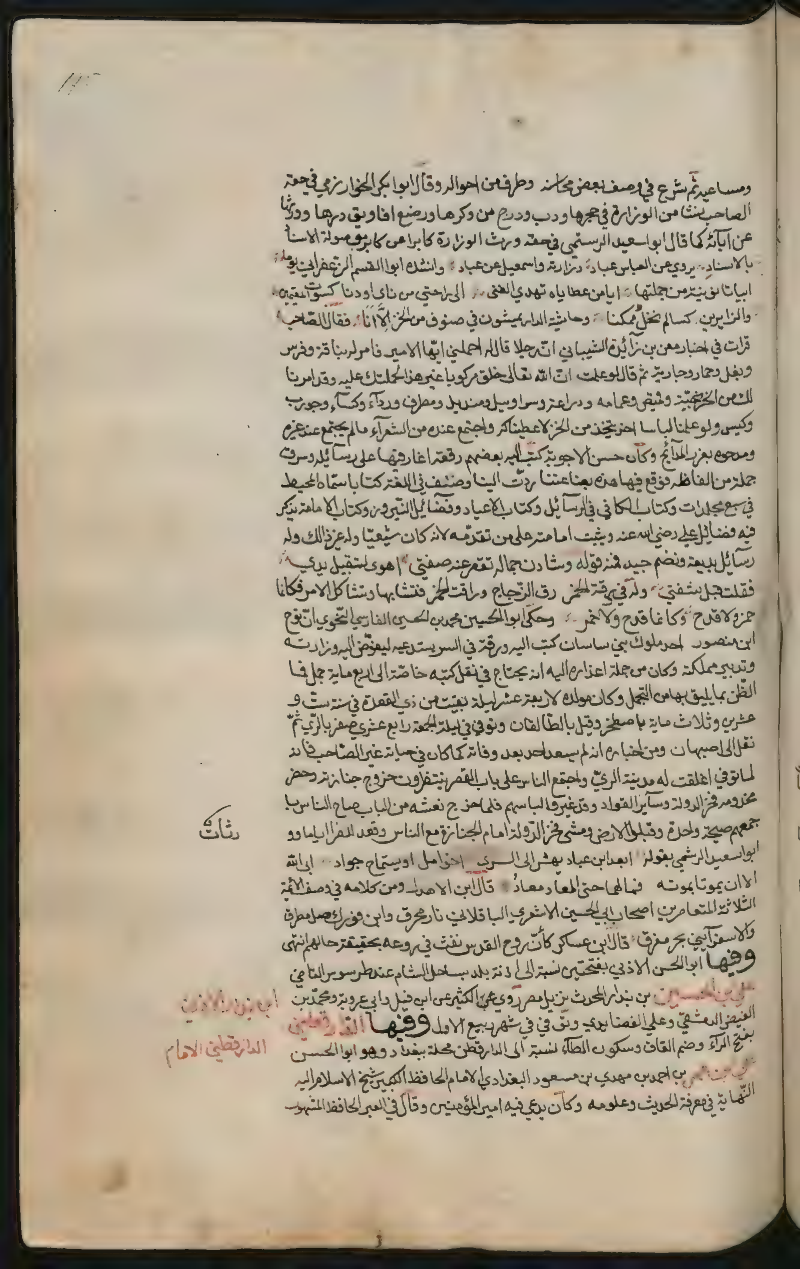 ومساعيه ثم شرع في وصف بعض محاسنه وطرف من احواله وقال ابوا بكر الخوارزمي في حقه
الصاحب نشا من الوزارة في حجرها ودب ودرج من وكرها ورضع افاويق درها وورثها
عن آبائه كما قال ابوا سعيد الرستمي في حقه ورث الوزارة كابرا عن كابر موصولة الاسناد
بالاسناد يروي عن العباس عباد وزارته واسمعيل عن عباد وانشده ابوا القسم الزعفراني يوما
ابياتا نونية من جملتها ايا من عطاياه تهدي الغنى الى راحتي من ناى او دنا كسوت المقيمين
والزايرين كسا لم نخل ممكنا وحاشية الدار يمشون في صنوف من الخز الا انا فقال الصاحب
قرات في اخبار معن بن زائدة الشيباني ان رجلا قال له احملني ايها الامير فامر له بناقة وفرس
وبغل وحمار وجارية ثم قال لو علمت ان الله تعالى خلق مركوبا غير هذا لحملتك عليه وقد امرنا
لك من الخز بجبة وقميص وعمامه ودراعة وسراويل ومنديل ومطرف ورداء وكساء وجورب
وكيس ولو علمنا لباسا اخر يتخذ من الخز لاعطيناكه واجتمع عنده من الشعراء مالم يجتمع عند غيره
ومدحوه بغرر المدائح وكان حسن الاجوبة كتب اليه بعضهم رقعة اغار فيها على رسائله وسرق
جملة من الفاظه فوقع فيها هذه بضاعتنا ردت الينا وصنف في اللغة كتابا سماه المحيط
في سبع مجلدات وكتاب الكافي في الرسائل وكتاب الاعياد وفضائل النيروز وكتاب الامامة يذكر
فيه فضائل علي رضي الله عنه ويثبت امامته على من تقدمه لانه كان شيعيا وله غير ذالك وله
رسائل بديعة ونضم جيد فمنه قوله وشادن جماله تقصر عنه صفتي اهوى لتقبيل يدي
فقلت قبل شفتي وله في رقة الخمر رق الزجاج وراقت الخمر فتشابها وتشاكل الامر فكانما
خمر ولا قدح وكانما قدح ولا خمر وحكى ابوا الحسين محمد بن الحسين الفارسي النحوي ان نوح
ابن منصور احد ملوك بني ساسان كتب اليه ورقة في السر يستدعيه ليفوض اليه وزارته
وتدبير مملكته وكان من جملة اعذاره اليه انه يحتاج في نقل كتبه خاصة الى اربع ماية جمل فما
الظن بما يليق بها من التجمل وكان مولده لاربعة عشر ليلة بقيت من ذي القعدة في سنة ست و
عشرين وثلاث ماية باصطخر وقيل بالطالقان وتوفي في ليلة الجمعة رابع عشري صفر بالري ثم
نقل الى اصبهان ومن اخباره انه لم يسعد احد بعد وفاته كما كان في حياته غير الصاحب فانه
لما توفي اغلقت له مدينة الري واجتمع الناس على باب القصر ينتظرون خروج جنازته وحضر
مخدومه فخر الدولة وسائر القواد وقد غيروا لباسهم فلما خرج نعشه من الباب صاح الناس با
جمعهم صيحة واحدة وقبلوا الارض ومشى فخر الدولة امام الجنازة مع الناس وقعد للعزا اياما ور
رثاث
ابوا سعيد الرستمي بقوله ابعد ابن عباد يهش الى السري اخو امل او يستماح جواد ابى الله
الا ان يموتا بموته فما لهما حتى المعاد معاد قال ابن الاهدل ومن كلامه في وصف الائمة
الثلاثة المتعاصرين اصحاب ابي الحسين الاشعري الباقلاني نار محرق وابن فورك صل مطرق
والاسفرآيني بحر مغرق قال ابن عساكر كان روح القدس نفث في روعه بحقيقة حالهم انتهى
وفيها ابوا الحسن الاذني بفتحتين نسبة الى اذنة بلد بساحل الشام عند طرسوس القاضي
علي بن الحسين بن بندار المحدث نزيل مصر روي عن الكثير عن ابن فيل وابي عروبة ومحمد بن
ابن بندار الاذني
الفيض الدمشقي وعلي الغضايري وتوفي في شهر ربيع الاول وفيها الدارقطني
بفتح الراء وضم القاف وسكون الطاء نسبة الى الدارقطن محلة ببغداد وهو ابوا الحسن
الدارقطني الامام
علي بن عمر بن احمد بن مهدي بن مسعود البغدادي الامام الحافظ الكبير شيخ الاسلام اليه
النهاية في معرفة الحديث وعلومه وكان يدعى فيه امير المؤمنين وقال في العبر الحافظ المشهور